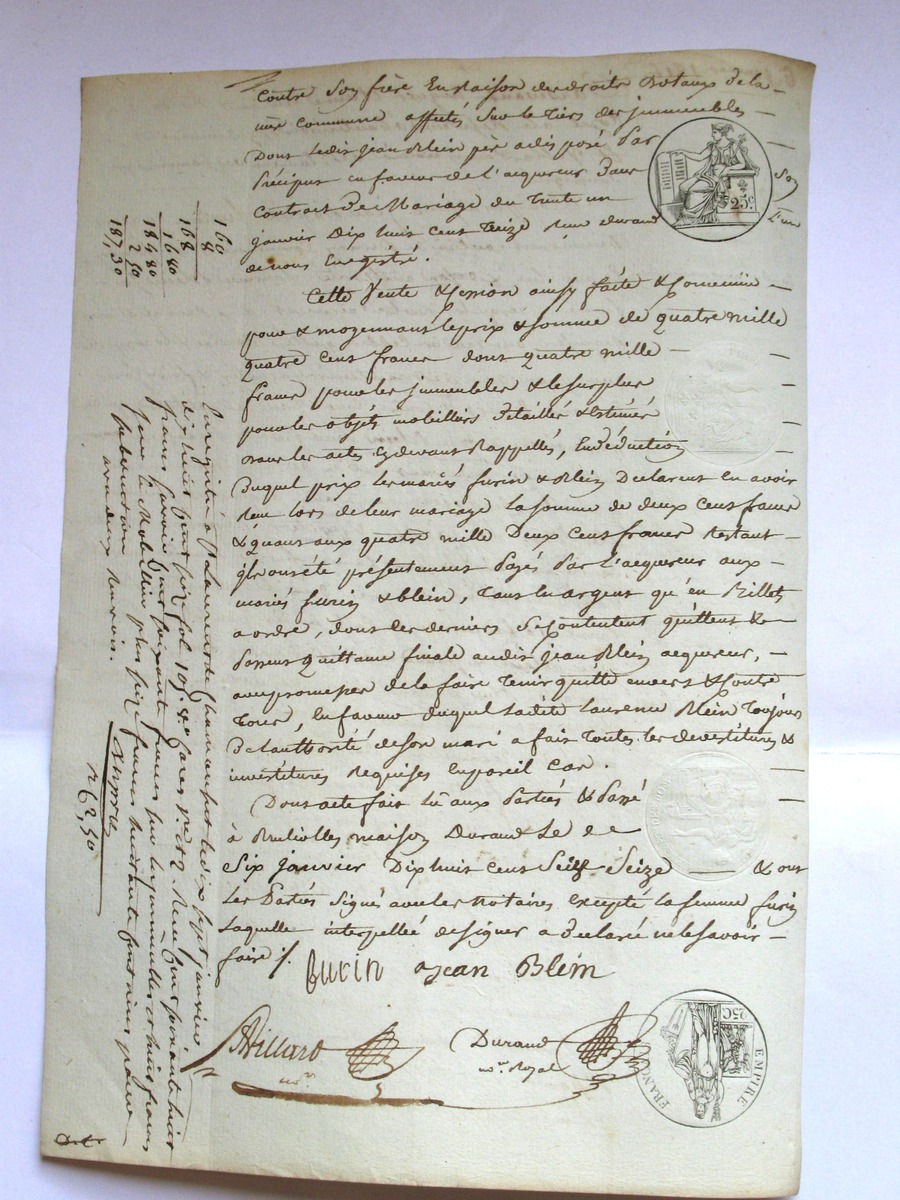 Contre Son frère En Raison des droits Rotaux de la
mère commune affectés Sur le tiers des jmmeubles
Dont ledit jean Blein père a disposé Par
Préciput en faveur de l'acquereur Dans
Contrat De Mariage du trente un
janvier Dix huit cent treize Reçu Durand
de nous Enregistré.
Cette Vente & Cession ainsy faite & Convenüe
pour & moyennant le prix & Somme de quatre mille
quatre cent francs dont quatre mille
francs pour les jmmeubles & le Surplus
pour les objets mobiliers Detaillés & Estimés
dans les actes Cydevant Rappellés, En Déduction
Duquel prix les mariés furin & Blein Declarent en avoir
Reçu lors de leur mariage la Somme de deux Cent francs
& quant aux quatre mille Deux Cent francs Restant
jls ont été présentement Payés Par l'acquereur aux
mariés furin & blein, tant en argent qu'en Billets
a ordre, dont les derniers Se Contentent quittent &
Passent Quittance finale audit jean Blein acquereur,
avec promesse de la faire Tenir quitte envers & Contre
Tous, En faveur duquel ladite laurence Blein Toujours
De l'authorité de son mari a fait Toutes les devestitures &
investitures Requises En pareil Cas.
Dont acte fait lû aux Parties & Passé
à Brulioles maison Durand Le
Six janvier Dix huit cent Seize & ont
Les Parties Signé avec les Notaires excepté la femme furin
laquelle interpellée de signer a Declaré ne le Savoir
faire /.
furin Jean Blein
Billard Durand
nre nre Royal
25c
EMPIRE FRANÇ
25C
160
8
168
1680
18480
2 50
187,30
Enregistré à St Laurent de Chamousset le dix sept janvier
dix huit cent seize fol. 109
francs Savoir
pour le Mobilier plus dix francs
Subvention
262,50